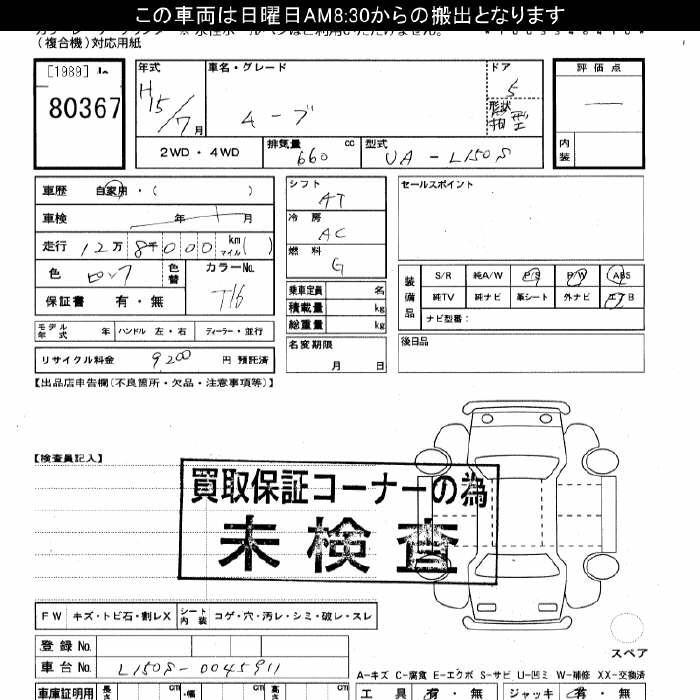 この車両は日曜日AM8:30からの搬出となります
(複合機)対応用紙
[1989]
80367
年式
H15/7月
車名・グレード
ムーブ
ドア
5
形状
箱型
評価点
内装
2WD・4WD
排気量
660 cc
型式
UA-L150S
車歴 自家用・( )
車検 年 月
走行 12万8千000 km マイル( )
色 ピンク
色替
カラーNo.
T16
保証書 有・無
モデル年式 年 ハンドル 左・右 ディーラー・並行
リサイクル料金 9200 円 預託済
シフト
AT
冷房
AC
燃料
G
乗車定員 名
積載量 kg
総重量 kg
名変期限
月 日
セールスポイント
装備品
S/R 純A/W P/S P/W ABS
純TV 純ナビ 革シート 外ナビ エアB
ナビ型番:
後日品
【出品店申告欄(不良箇所・欠品・注意事項等)】
【検査員記入】
買取保証コーナーの為
未検査
FW キズ・トビ石・割レX シート内装 コゲ・穴・汚レ・シミ・破レ・スレ
スペア
登録No.
車台No. L150S-0045911
A-キズ C-腐食 E-エクボ S-サビ U-凹ミ W-補修 XX-交換済
車庫証明用 長さ cm ・幅 cm 高さ cm
工具 有・無 ジャッキ 有・無